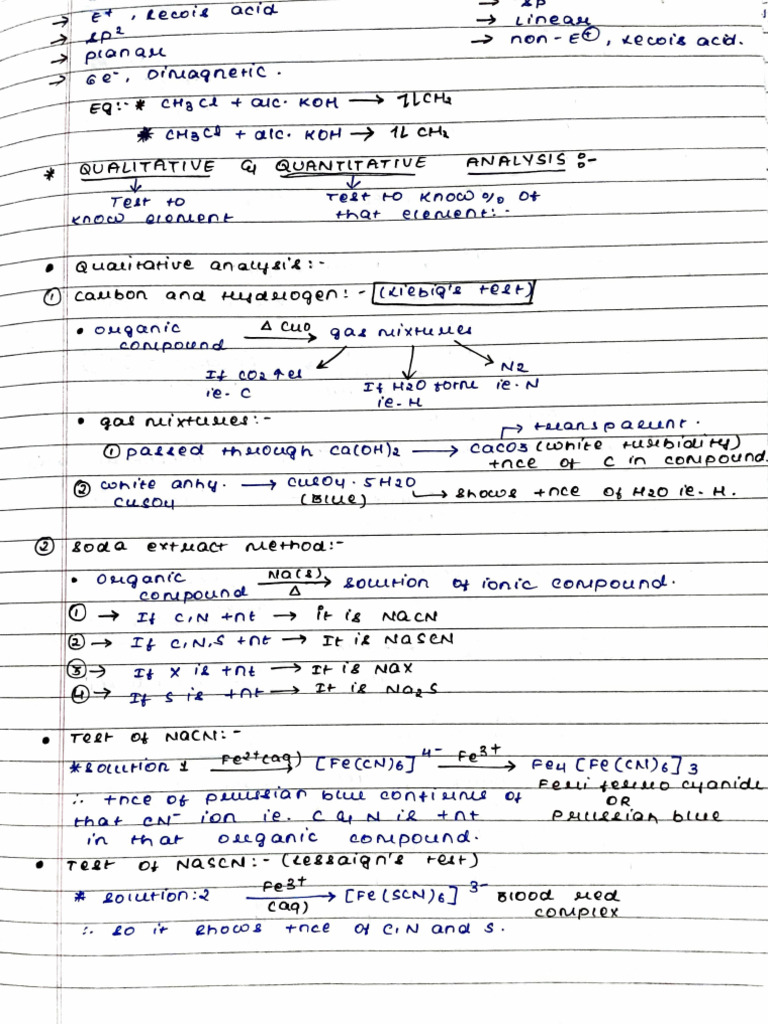 → E⁺, Lewis acid
→ sp²
→ planar
→ 6e⁻, Dimagnetic.
→ sp
→ linear
→ non-E⊕, Lewis acid.
Eg:- * CH3Cl + alc. KOH ⟶ 1L CH2
* CH3Cl + alc. KOH → 1L CH2
* QUALITATIVE & QUANTITATIVE ANALYSIS :-
↓ Test to ↓ Test to know % of
know element that element:-
• Qualitative analysis:-
① Carbon and Hydrogen:- (Liebig's test)
• organic compound —Δ CuO→ gas mixtures
If CO2 ↑es ie. C
If H2O forms ie. H
N2 ie. N
• gas mixtures:-
↦ transparent.
① passed through Ca(OH)2 ⟶ CaCO3 (white turbidity)
+nce of C in compound.
② white anhy. CuSO4 ⟶ CuSO4.5H2O (Blue) ↳ shows +nce of H2O ie. H.
② Soda extract method:-
• organic compound —Na(s) Δ→ solution of ionic compound.
① → If C,N +nt → it is NaCN
② → If C,N,S +nt → It is NaSCN
③ → If X is +nt → It is NaX
④ → If S is +nt → It is Na2S
• Test of NaCN:-
* solution 1 —Fe²⁺(aq)→ [Fe(CN)6]⁴⁻ —Fe³⁺→ Fe4[Fe(CN)6]3
Ferri ferro cyanide
OR
Prussian blue
∴ +nce of prussian blue confirms of
that CN⁻ ion ie. C & N is +nt
in that organic compound.
• Test of NaSCN:- (Lessaign's test)
* solution:2 —Fe³⁺ (aq)→ [Fe(SCN)6]³⁻ Blood red complex
∴ so it shows +nce of C,N and S.